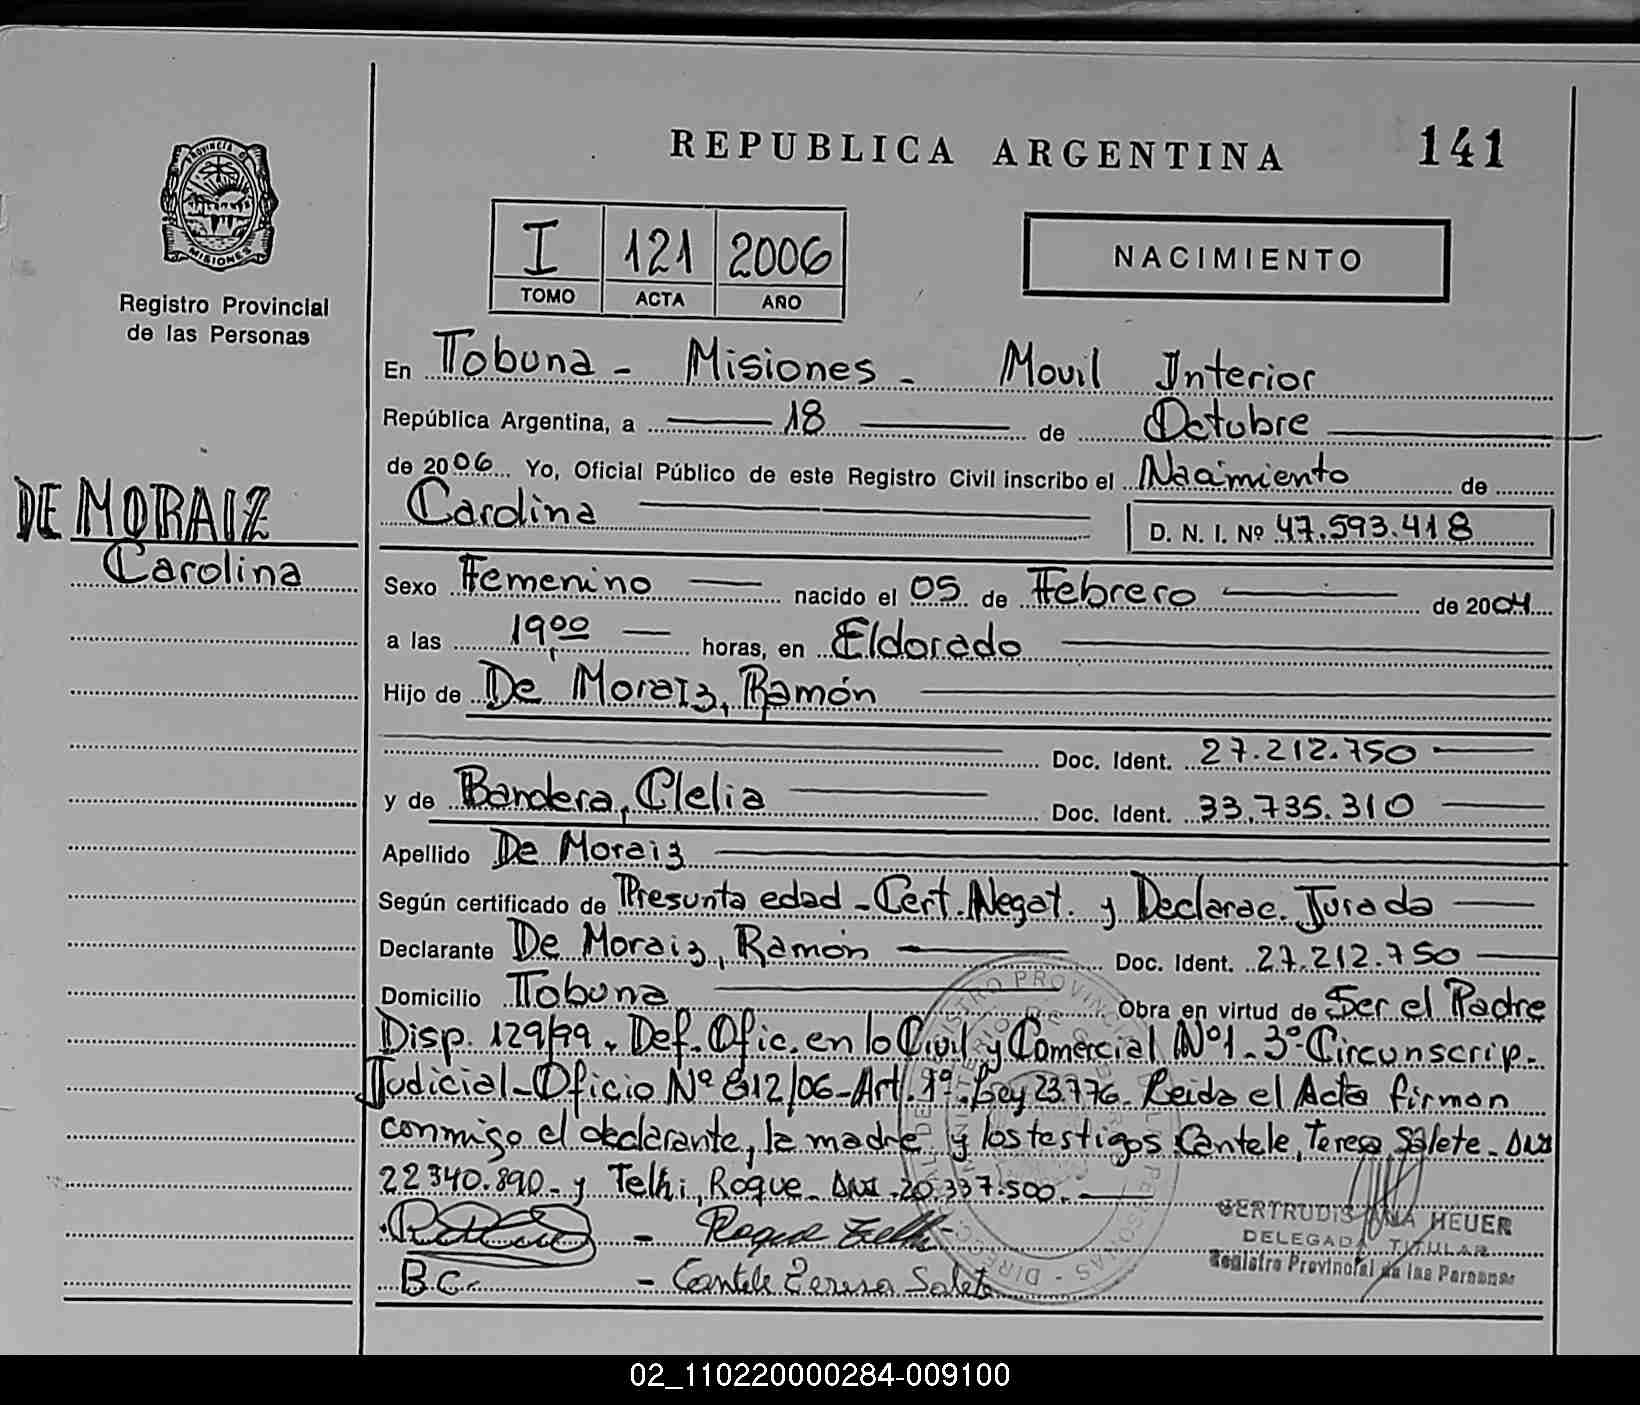 REPUBLICA ARGENTINA
141
PROVINCIA D
MISIONES
Registro Provincial
de las Personas
I 121 2006
TOMO ACTA AÑO
NACIMIENTO
En Tobuna - Misiones - Movil Interior
República Argentina, a 18 de Octubre
de 2006 Yo, Oficial Público de este Registro Civil inscribo el Nacimiento de
Carolina D. N. I. Nº 47.593.418
DE MORAIZ
Carolina
Sexo Femenino nacido el 05 de Febrero de 2004
a las 19,00 horas, en Eldorado
Hijo de De Moraiz, Ramón
Doc. Ident. 27.212.750
y de Bandera, Clelia Doc. Ident. 33.735.310
Apellido De Moraiz
Según certificado de Presunta edad - Cert. Negat. y Declarac. Jurada
Declarante De Moraiz, Ramón Doc. Ident. 27.212.750
Domicilio Tobuna Obra en virtud de Ser el Padre
Disp. 129/99. Def. Ofic. en lo Civil y Comercial Nº1 - 3º Circunscrip.
Judicial - Oficio Nº 812/06 - Art. 1º. Ley 23.776. Leida el Acta firman
conmigo el declarante, la madre y los testigos Cantele, Teresa Salete - DNI
22.340.890 - y Telhi, Roque - DNI 20.337.500.
- Roque Telhi
B.C. - Cantele Teresa Salete
GERTRUDIS ANA HEUER
DELEGADA TITULAR
Registro Provincial de las Personas
02_110220000284-009100